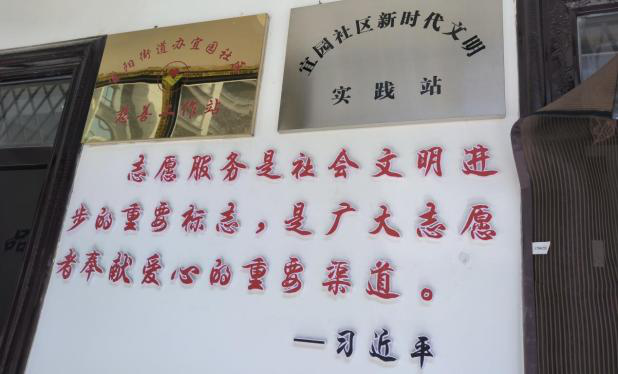 阳街道办宜园社区
慈善工作站
宜园社区新时代文明
实践站
志愿服务是社会文明进
步的重要标志，是广大志愿
者奉献爱心的重要渠道。
—习近平
品